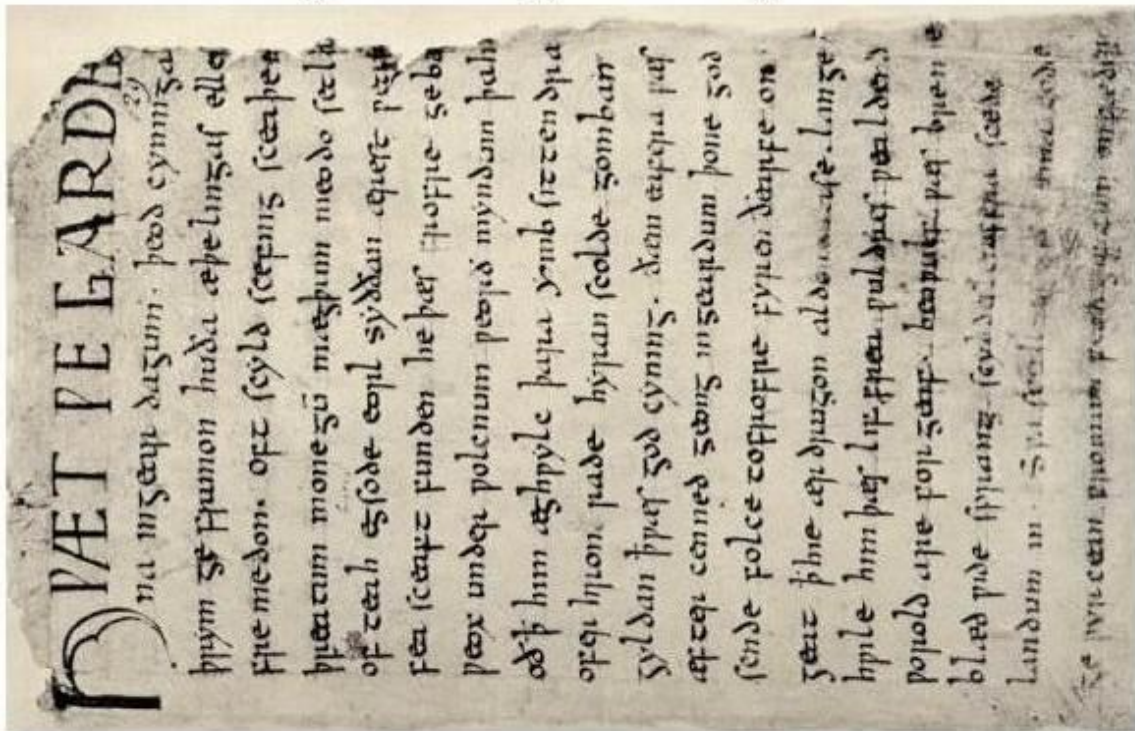 HǷÆT ǷE GARDE
na ingear dagum. þeod cyninga
þrym ge frunon huða æþelingas elle
fremedon. oft scyld scefing sceaþen
þreatum monegū mægþum meodo setla
of teah egsode eorl syððan ærest ƿear
fea sceaft funden he þæs frofre geba
ƿeox under ƿolcnum ƿeorð myndum þah
oð ꝥ him æghƿylc þara ymb sittendra
ofer hron rade hyran scolde gomban
gyldan ꝥ ƿæs god cyning. ðæm eafera ƿæs
æfter cenned geong ingeardum þone god
sende folce tofrofre fyren ðearfe on
geat ꝥ hie ær drugon aldor ase. lange
hƿile him þæs lif frea ƿuldres ƿealdend
ƿorold are for geaf. beoƿulf ƿæs breme
blæd ƿide sprang scyldes eafera scede
landum in. Sƿa sceal guma gode
ge ƿyrcean fromum feoh giftum